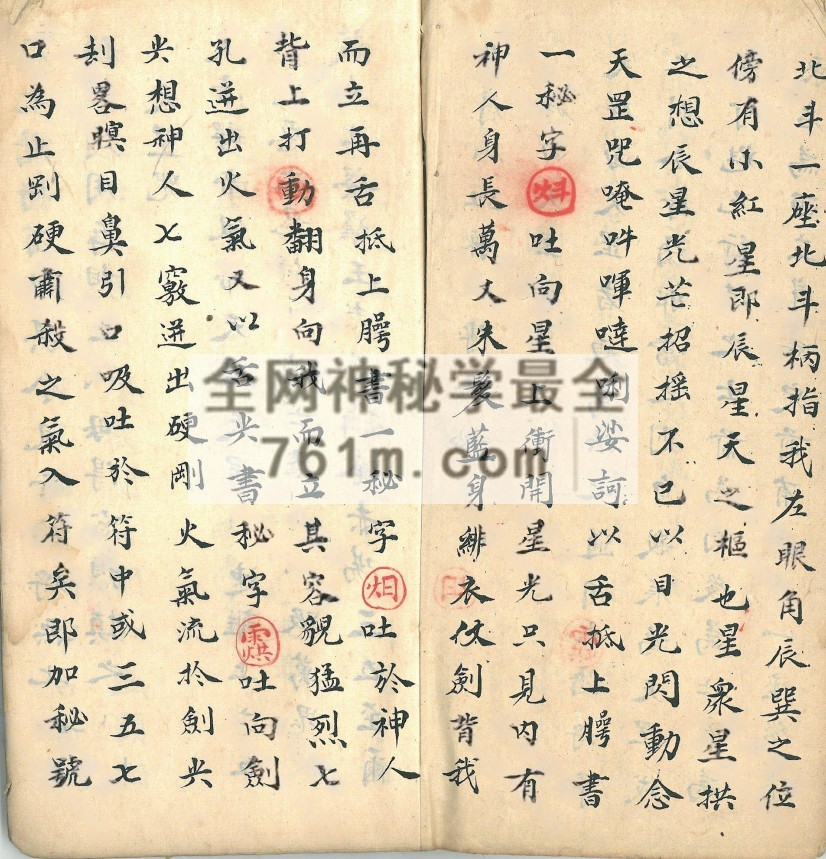 北斗一座北斗柄指我左眼角辰巽之位
傍有小紅星即辰星天之樞也星衆星拱
之想辰星光芒招摇不已以目光閃動念
天罡咒唵吽㖯噠唎娑訶以舌抵上腭書
一秘字㸯吐向星上衝開星光只見内有
神人身長萬丈朱髮藍身緋衣仗劍背我
而立再舌抵上腭書一秘字 吐於神人
背上打動翻身向我而立其容貌猛烈七
孔迸出火氣又以舌尖書秘字 吐向劍
尖想神人七竅迸出硬剛火氣流於劍尖
刦畧瞑目鼻引口吸吐於符中或三五七
口為止剛硬肅殺之氣入符矣即加秘號
全网神秘学最全
761m.com